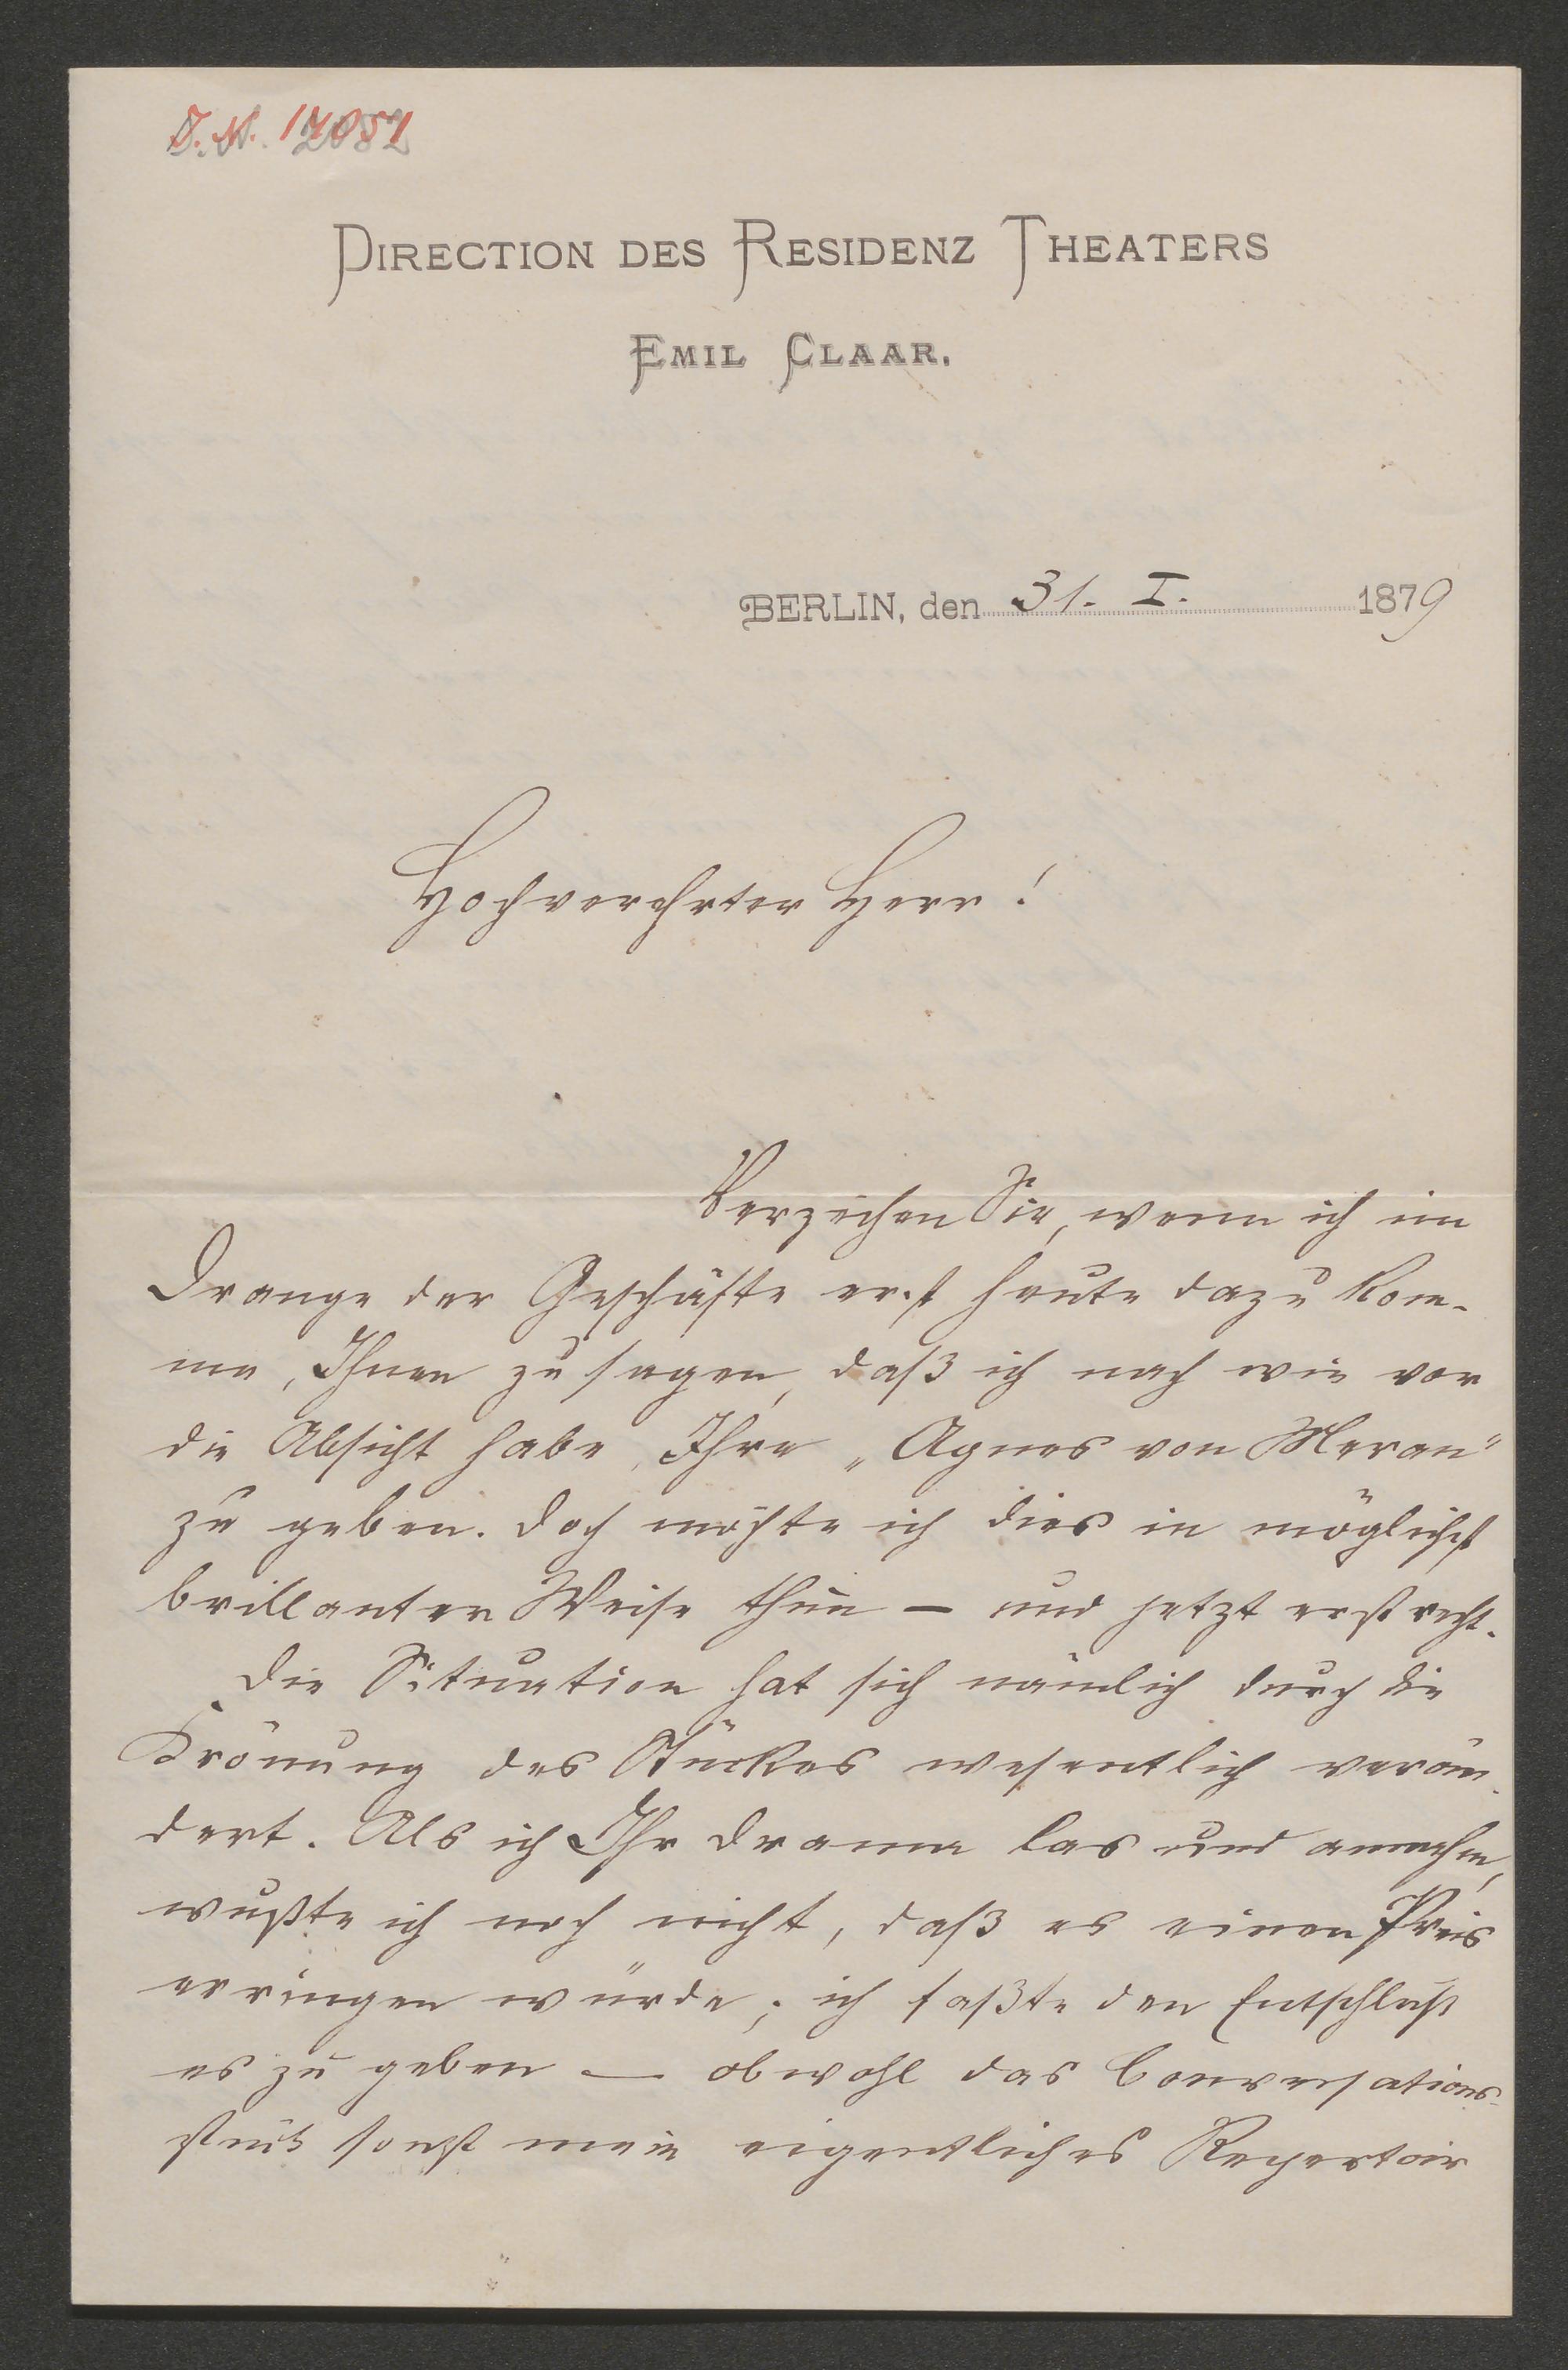 J. N. 17051
DIRECTION DES RESIDENZ THEATERS
EMIL CLAAR.
BERLIN, den 31. I. 1879
Hochverehrter Herr!
Verzeihen Sie, wenn ich im
Drange der Geschäfte erst heute dazu kom-
me, Ihnen zu sagen, daß ich nach wie vor
die Absicht habe, Ihre „Agnes von Meran"
zu geben. Doch möchte ich dies in möglichst
brillanter Weise thun — und jetzt erst recht.
Die Situation hat sich nämlich durch die
Krönung des Stückes wesentlich verän-
dert. Als ich Ihr Drama las und annahm,
wußte ich noch nicht, daß es einen Preis
erringen würde; ich faßte den Entschluß
es zu geben — obwohl das Conversations-
stück sonst mein eigentliches Repertoir